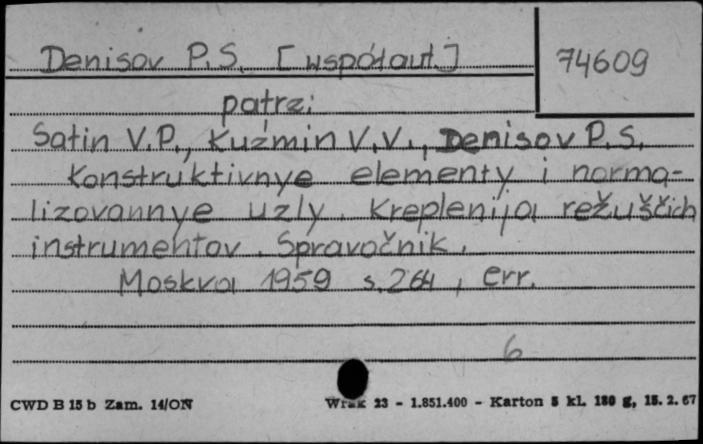 Denisov P.S. [współaut.]
74609
patrz:
Satin V.P., Kuźmin V.V., Denisov P.S.
Konstruktivnye elementy i norma-
lizovannye uzly. Kreplenija režuščich
instrumentov. Spravočnik.
Moskva 1959 s. 264, err.
6
CWD B 15 b Zam. 14/ON
Wrak 23 - 1.851.400 - Karton 5 kl. 180 g, 15. 2. 67